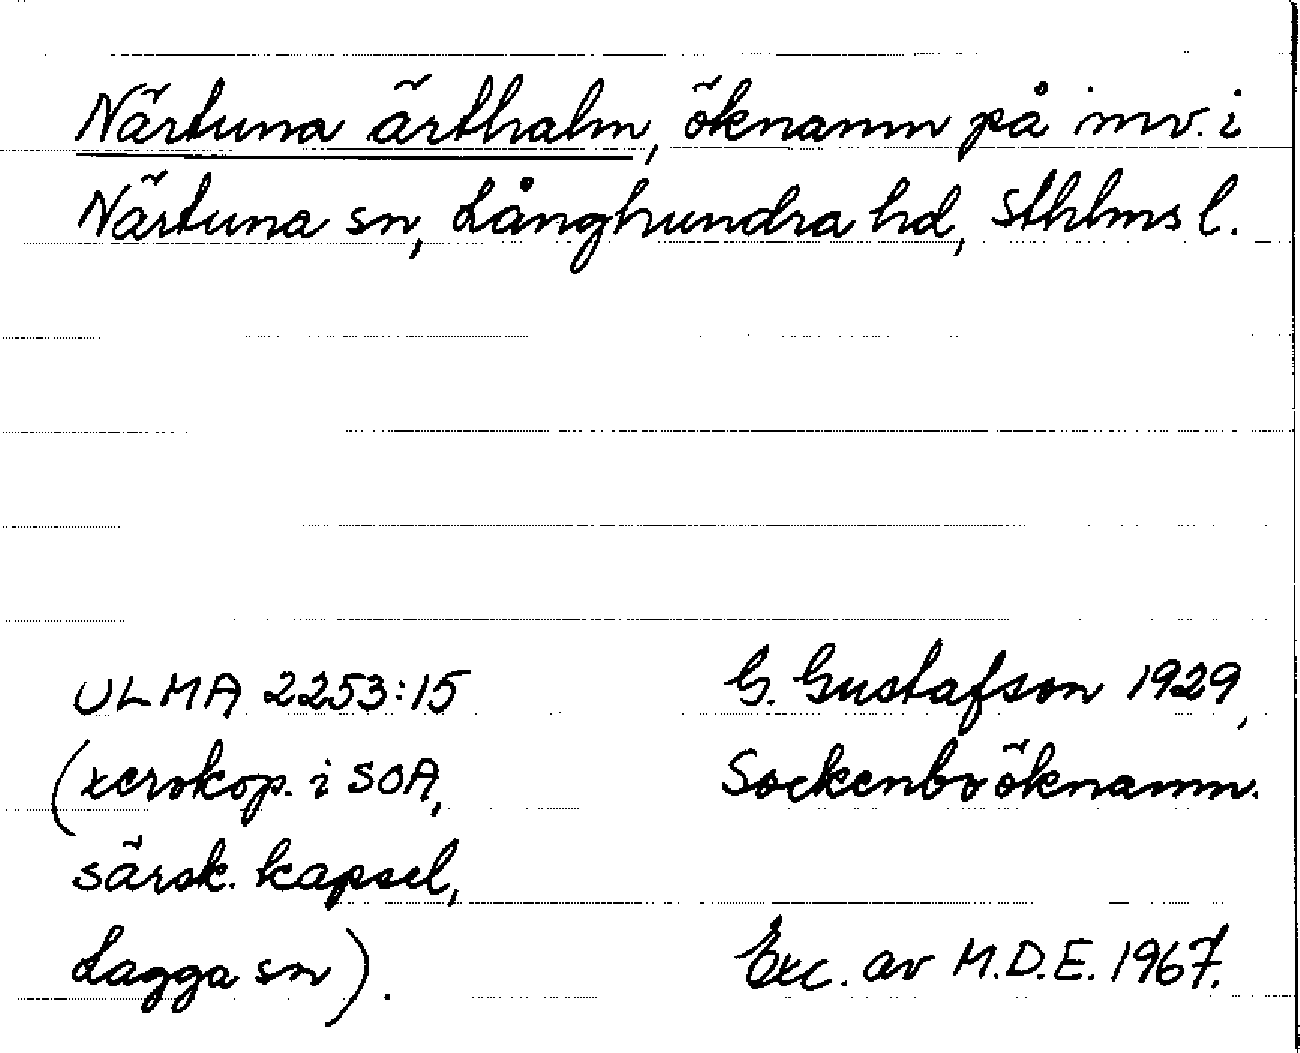 Närtuna ärthalm, öknamn på inv. i
Närtuna sn, Långhundra hd, Sthlms l.
ULMA 2253:15
(xerokop. i SOA,
särsk. kapsel,
Lagga sn).
G. Gustafson 1929,
Sockenboöknamn.
Exc. av M.D.E. 1967.